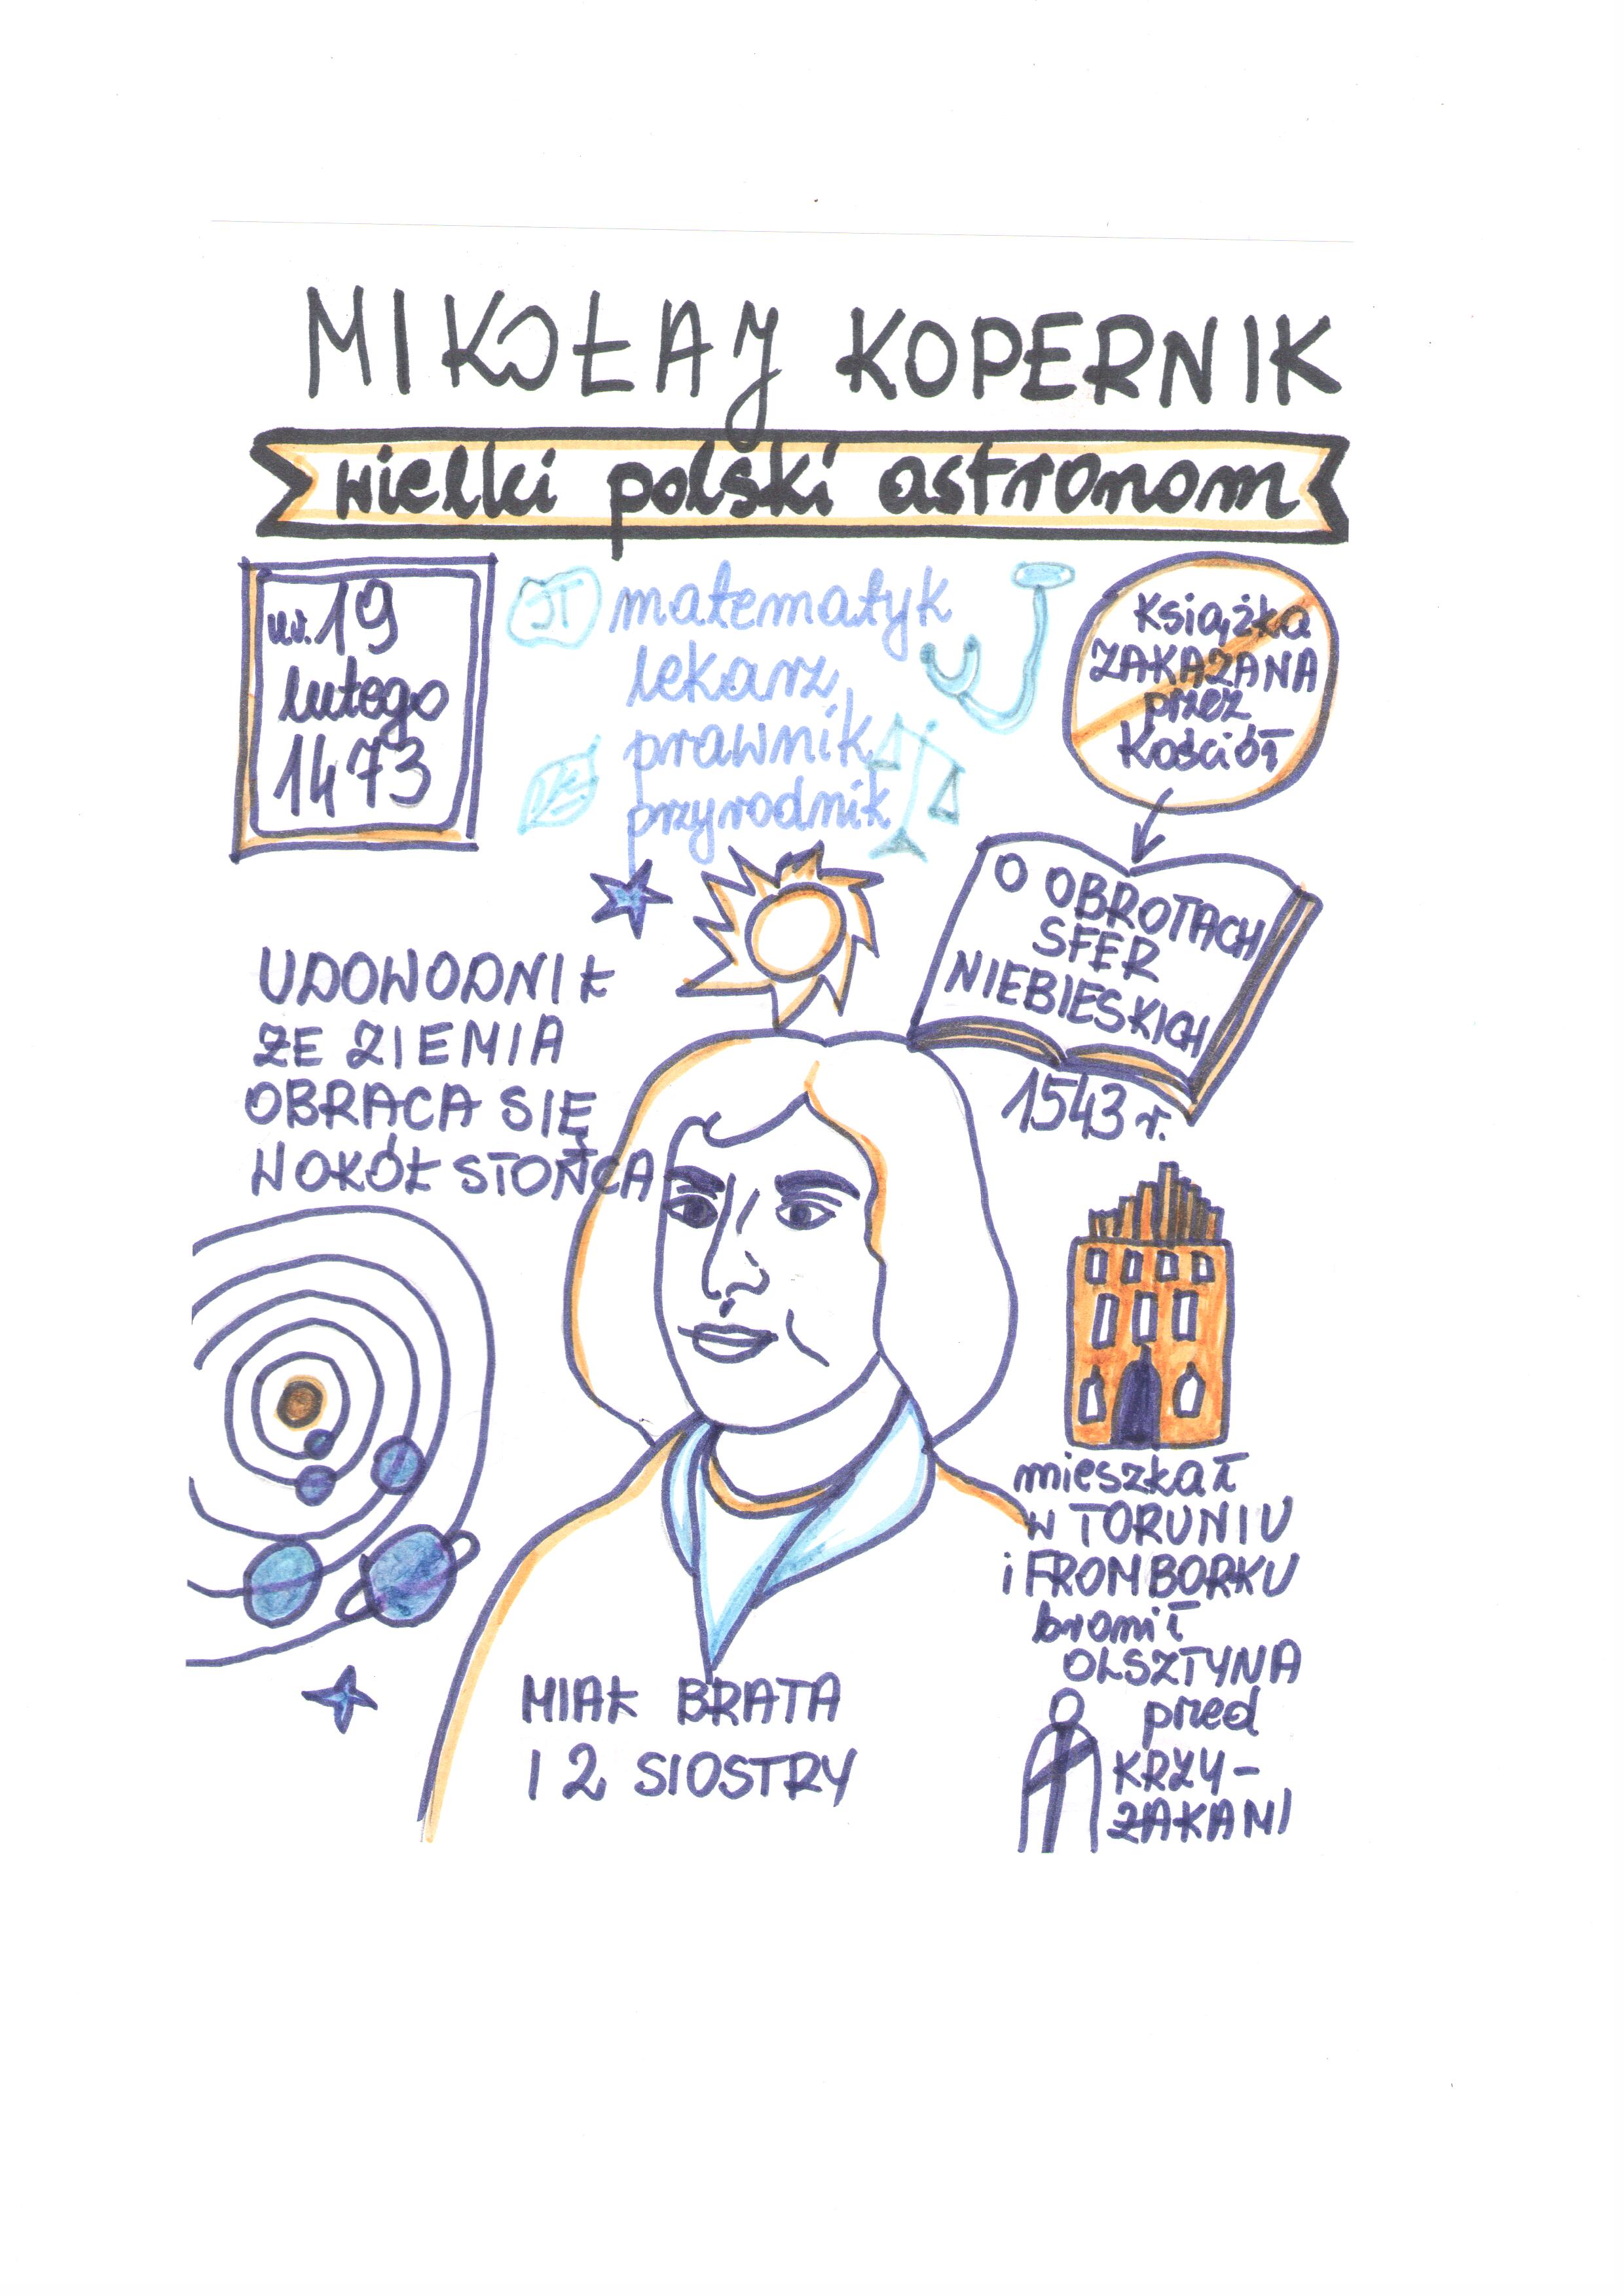 MIKOŁAJ KOPERNIK
wielki polski astronom
ur. 19
lutego
1473
π
matematyk
lekarz
prawnik
przyrodnik
Książka
ZAKAZANA
przez
Kościół
O OBROTACH
SFER
NIEBIESKICH
1543 r.
UDOWODNIŁ
ŻE ZIEMIA
OBRACA SIĘ
WOKÓŁ SŁOŃCA
mieszkał
w TORUNIU
i FROMBORKU
bronił
OLSZTYNA
przed
KRZY-
ŻAKAMI
MIAŁ BRATA
I 2 SIOSTRY